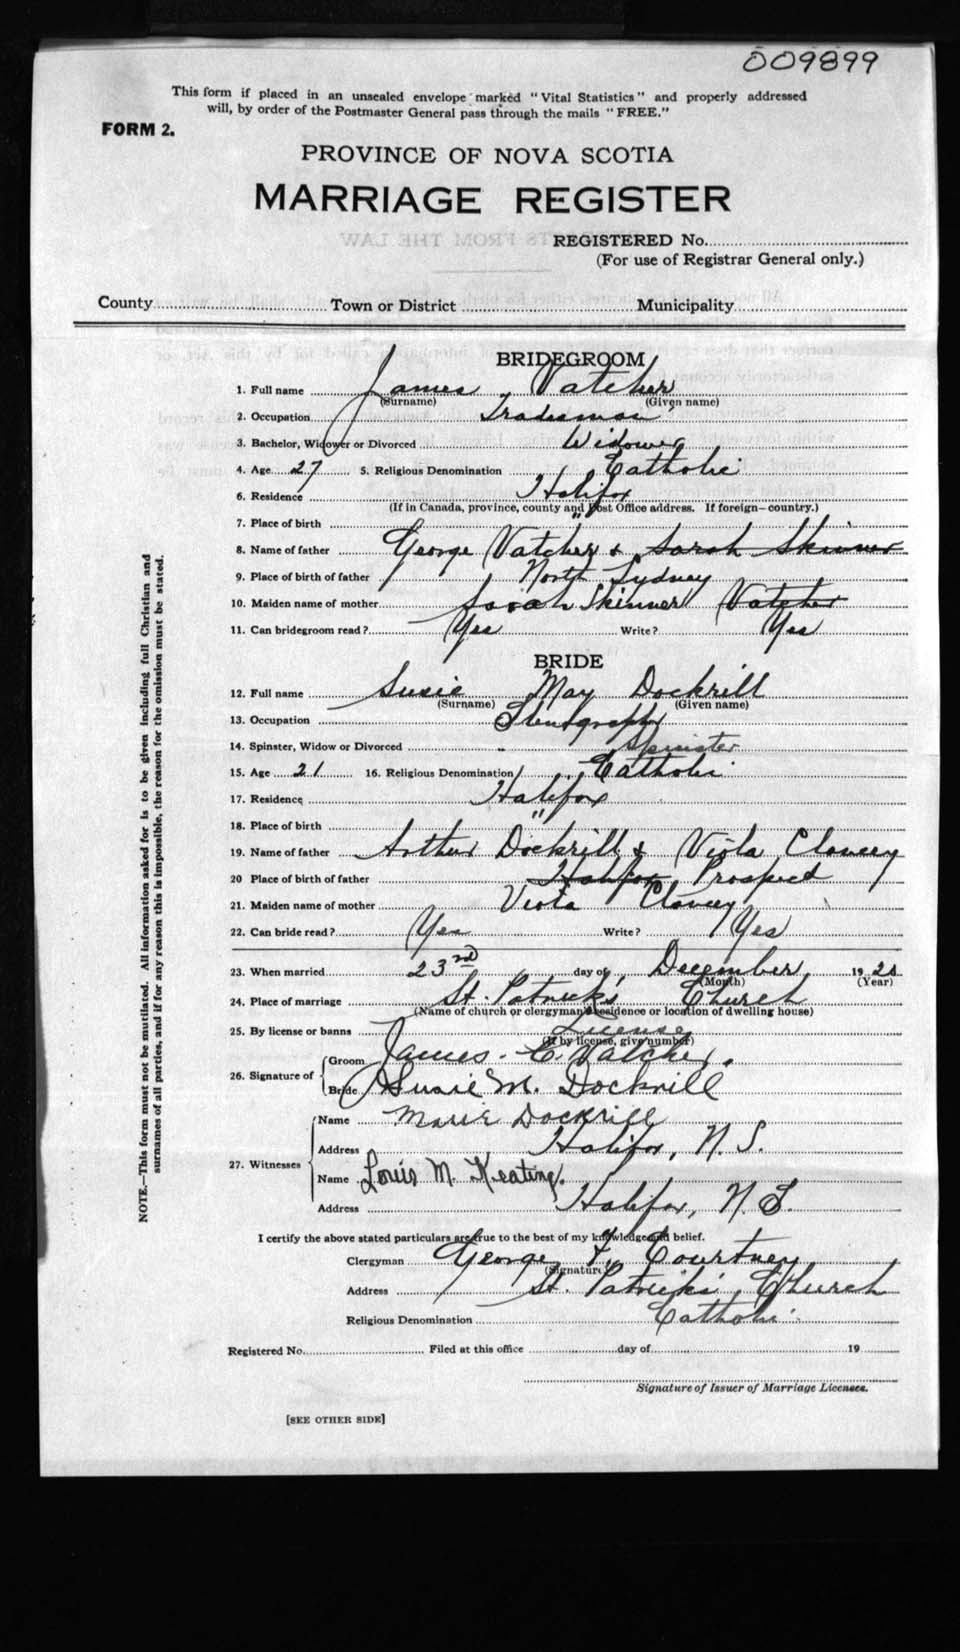 009899
This form if placed in an unsealed envelope marked "Vital Statistics" and properly addressed
will, by order of the Postmaster General pass through the mails "FREE."
FORM 2.
PROVINCE OF NOVA SCOTIA
MARRIAGE REGISTER
REGISTERED No.
(For use of Registrar General only.)
County Town or District Municipality
BRIDEGROOM
1. Full name James Vatcher
(Surname) (Given name)
2. Occupation Tradesman
3. Bachelor, Widower or Divorced Widower
4. Age 27 5. Religious Denomination Catholic
6. Residence Halifax
(If in Canada, province, county and Post Office address. If foreign—country.)
7. Place of birth "
8. Name of father George Vatcher & Sarah Skinner
9. Place of birth of father North Sydney
10. Maiden name of mother Sarah Skinner Vatcher
11. Can bridegroom read? Yes Write? Yes
BRIDE
12. Full name Susie May Dockrill
(Surname) (Given name)
13. Occupation Stenographer
14. Spinster, Widow or Divorced Spinster
15. Age 21 16. Religious Denomination Catholic
17. Residence Halifax
18. Place of birth "
19. Name of father Arthur Dockrill & Viola Clancey
20 Place of birth of father Halifax Prospect
21. Maiden name of mother Viola Clancey
22. Can bride read? Yes Write? Yes
23. When married 23rd day of December 19
(Month) (Year)
24. Place of marriage St. Patrick's Church
(Name of church or clergyman's residence or location of dwelling house)
25. By license or banns License
(If by license, give number)
26. Signature of
Groom James. C. Vatcher.
Bride Susie M. Dockrill
27. Witnesses
Name Marie Dockrill
Address Halifax, N. S.
Name Louis M. Keating.
Address Halifax, N. S.
I certify the above stated particulars are true to the best of my knowledge and belief.
Clergyman George Courtney
(Signature)
Address St. Patrick's Church
Religious Denomination Catholic
Registered No. Filed at this office day of 19
Signature of Issuer of Marriage Licenses.
[SEE OTHER SIDE]
NOTE.—This form must not be mutilated. All information asked for is to be given including full Christian and
surnames of all parties, and if for any reason this is impossible, the reason for the omission must be stated.